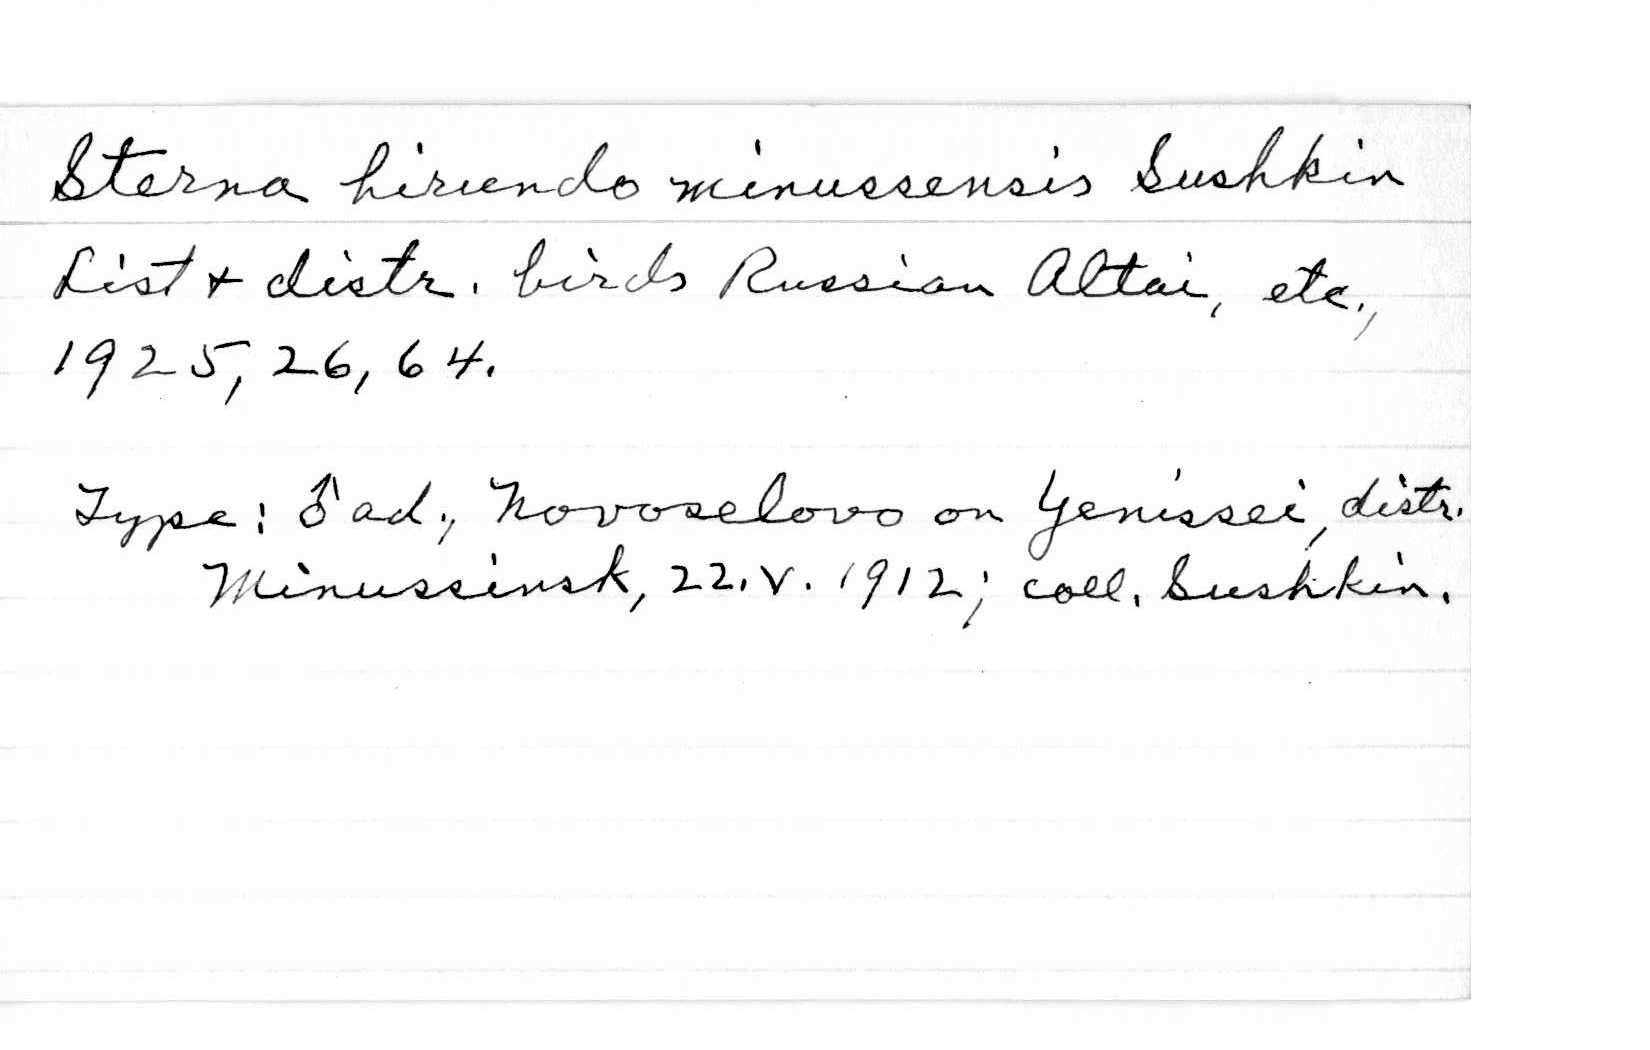 Sterna hirundo minussensis Sushkin
List + distr. birds Russian Altai, etc.,
1925, 26, 64.
Type: ♂ ad., Novoselovo on Yenissei, distr.
Minussinsk, 22.V.1912; coll. Sushkin.